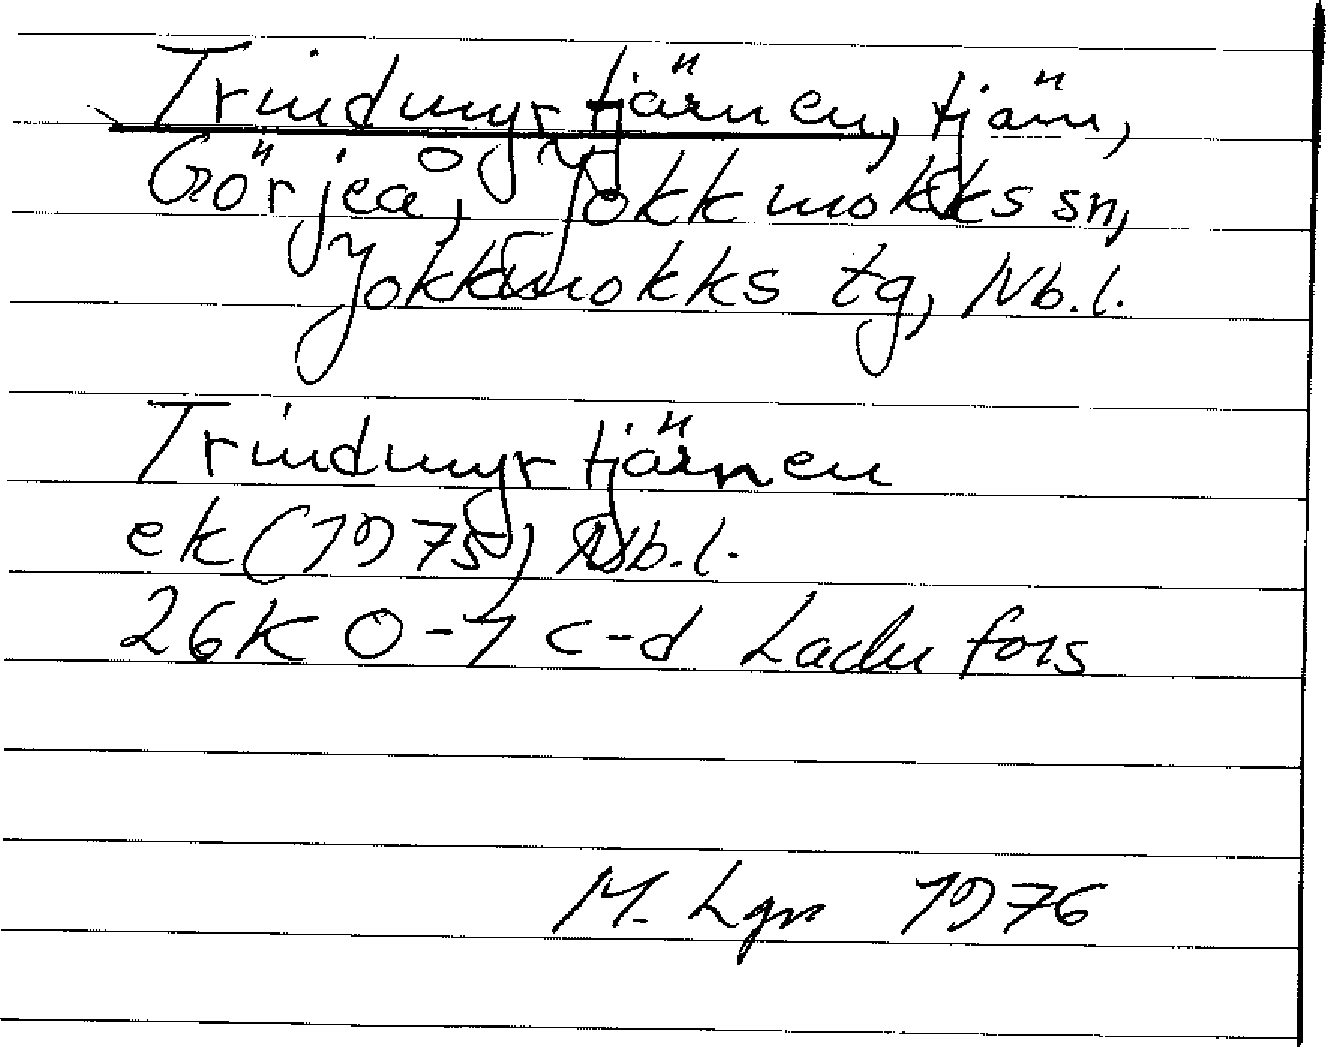 Trindmyrtjärnen, tjärn,
Görjeå, Jokkmokks sn,
Jokkmokks tg, Nb.l.
Trindmyrtjärnen
ek (1975) Nb.l.
26K 0-1 c-d Ladufors
M. Lgn 1976